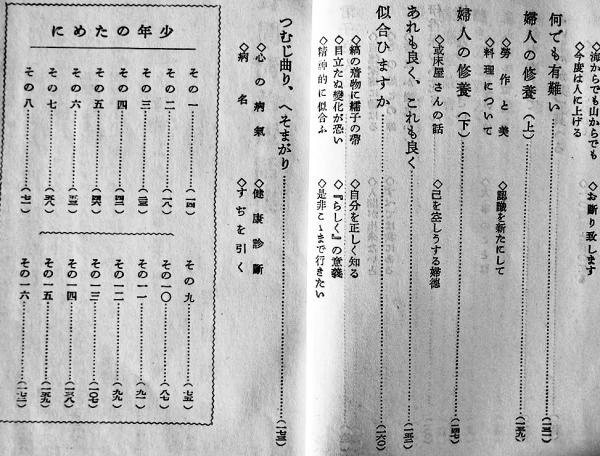 ◇海からでも山からでも ◇お断り致します
◇今度は人に上げる
何でも有難い……
婦人の修養(上)……(一三九)
◇労作と美 ◇認識を新たにして
◇料理について
婦人の修養(下)……(一四七)
◇或床屋さんの話 ◇己を空しうする婦德
あれも良く、これも良く……
似合ひますか……(一六〇)
◇縞の着物に繻子の帶 ◇自分を正しく知る
◇目立たぬ變化が恐い ◇『らしく』の意義
◇精神的に似合ふ ◇是非こゝまで行きたい
つむじ曲り、へそまがり……(一七三)
◇心の病氣 ◇健康診斷
◇病名 ◇すぢを引く
少年のために
その一……(一四)
その二……
その三……
その四……(四三)
その五……
その六……(五三)
その七……
その八……
その九……(七五)
その一〇……(八七)
その一一……(九一)
その一二……(九九)
その一三……(一〇七)
その一四……(一三八)
その一五……(一五九)
その一六……(一七二)